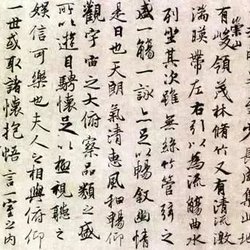 崇山
有峻領茂林脩竹又有清流激
湍暎帶左右引以為流觴曲水
列坐其次雖無絲竹管弦之
盛一觴一詠亦足以暢敘幽情
是日也天朗氣清惠風和暢仰
觀宇宙之大俯察品類之盛
所以遊目騁懷足以極視聽之
娛信可樂也夫人之相與俯仰
一世或取諸懷抱悟言一室之內